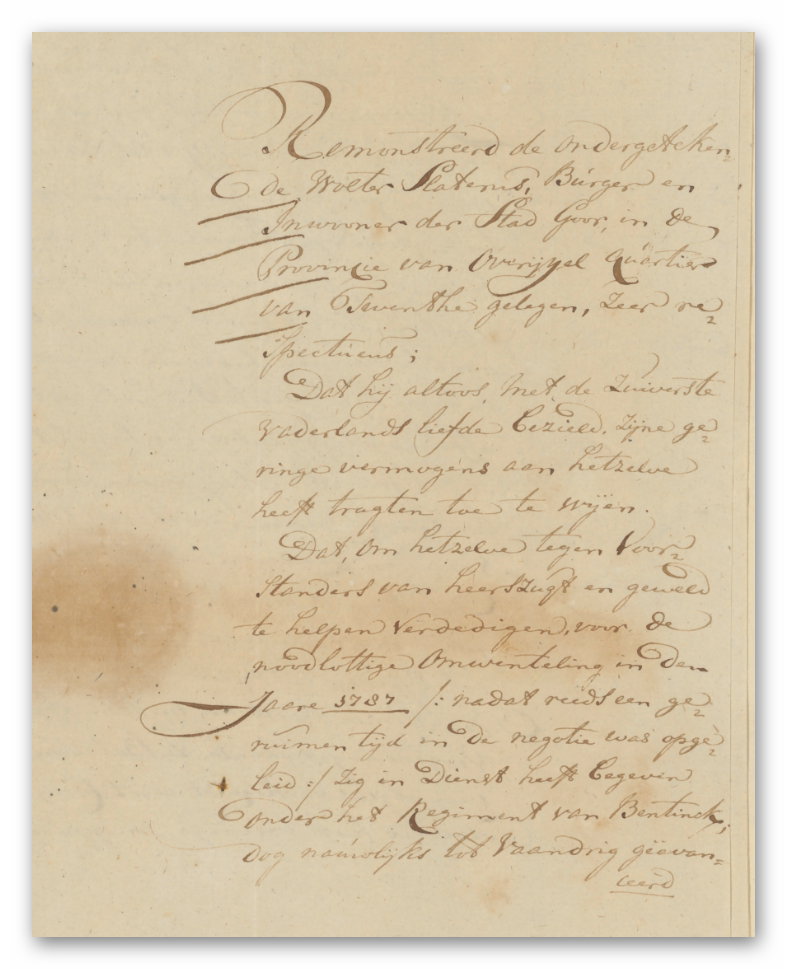 Remonstreerd de ondergeteken=
de Wolter Slaterus, Burger en
Inwooner der Stad Goor, in de
Provincie van Overijssel Quartier
van Twenthe gelegen, zeer re=
spectueus;
Dat hij altoos, met de zuiverste
vaderlands liefde bezield, zijne ge=
ringe vermogens aan hetzelve
heeft tragten toe te wijen.
Dat, om hetzelve tegen Voor=
standers van heerszugt en geweld
te helpen verdedigen, voor de
noodlottige Omwenteling in den
Jaare 1787 /: nadat reeds een ge=
ruimen tijd in de negotie was opge=
leid :/ zig in Dienst heeft begeven
onder het Regiment van Bentinck,
dog nauwlijks tot Vaandrig geavan=
ceerd